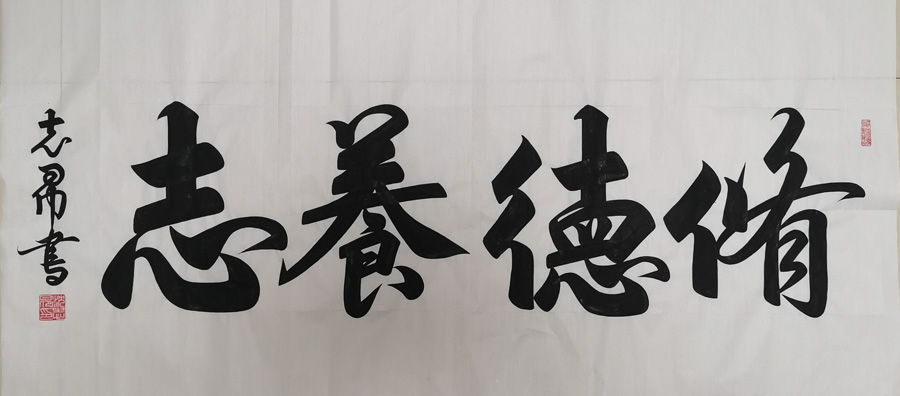 脩德養志
志昂書